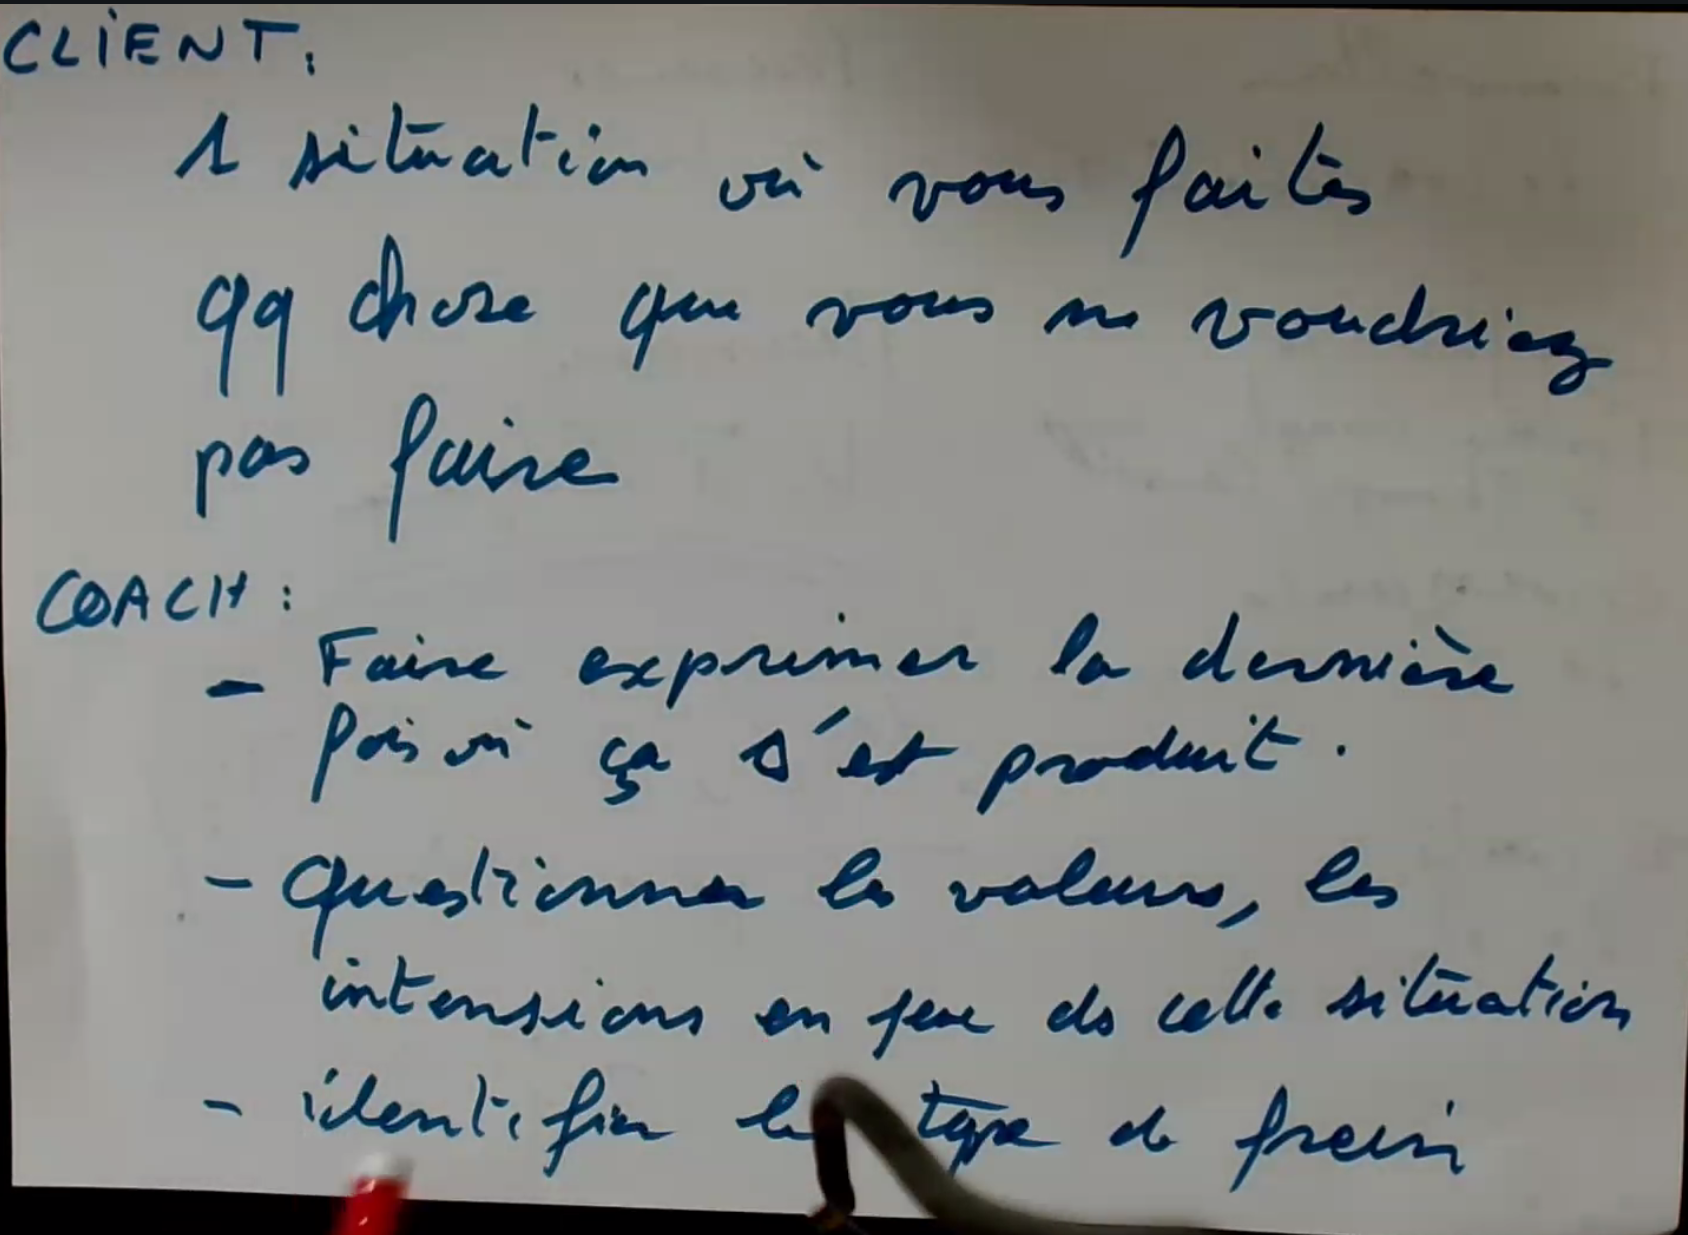 CLIENT:
1 situation où vous faites
qq chose que vous ne voudriez
pas faire
COACH :
- Faire exprimer la dernière
fois où ça s'est produit.
- Questionner les valeurs, les
intensions en jeu ds cette situation
- identifier le type de frein